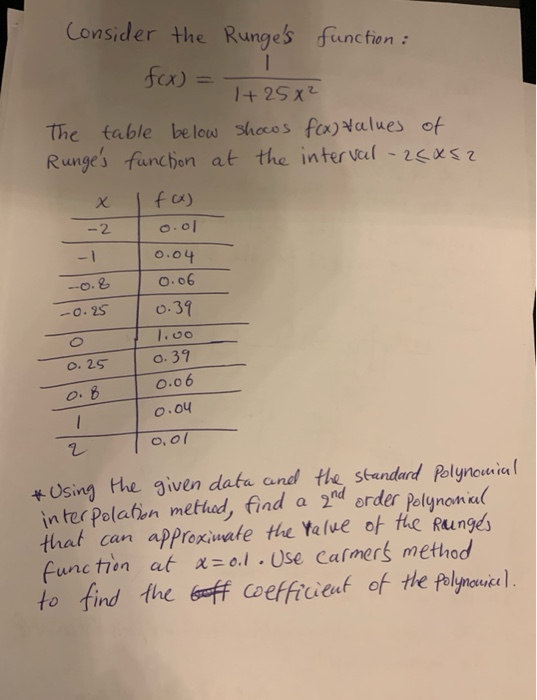 Consider the Runge's function:
f(x) = 1 / 1+25x²
The table below shows f(x) values of
Runge's function at the interval -2≤x≤2
x f(x)
-2 0.01
-1 0.04
-0.8 0.06
-0.25 0.39
0 1.00
0.25 0.39
0.8 0.06
1 0.04
2 0.01
* Using the given data and the standard Polynomial
interpolation method, find a 2nd order polynomial
that can approximate the value of the Runge's
function at x=0.1. Use Carmer's method
to find the coefficient of the polynomial.